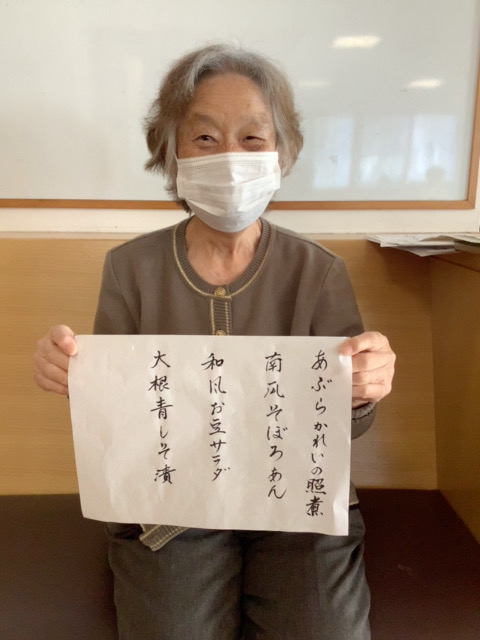 あぶらかれいの照煮
南瓜そぼろあん
和風お豆サラダ
大根青しそ漬